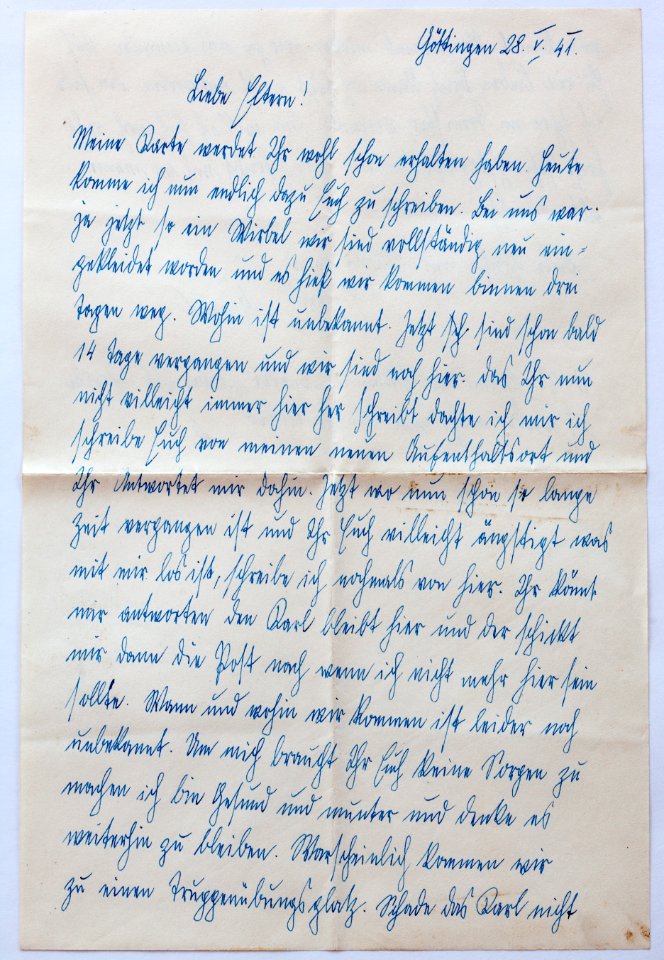 Göttingen 28. V. 41.
Liebe Eltern!
Meine Karte werdet Ihr wohl schon erhalten haben. Heute
komme ich nun endlich dazu Euch zu schreiben. Bei uns war
ja jetzt so ein Wirbel wir sind vollständig neu ein=
gekleidet worden und es hieß wir kommen binnen drei
Tagen weg. Wohin ist unbekannt. Jetzt sind schon bald
14 Tage vergangen und wir sind noch hier. das Ihr nun
nicht villeicht immer hier her schreibt dachte ich mir ich
schreibe Euch von meinen neuen Aufenthaltsort und
Ihr Antwortet mir dahin. Jetzt wo nun schon so lange
Zeit vergangen ist und Ihr Euch villeicht ängstigt was
mit mir los ist, schreibe ich nochmals von hier. Ihr könnt
mir antworten den Karl bleibt hier und der schickt
mir dann die Post nach wenn ich nicht mehr hier sein
sollte. Wann und wohin wir kommen ist leider noch
unbekannt. Um mich braucht Ihr Euch keine Sorgen zu
machen ich bin Gesund und munter und denke es
weiterhin zu bleiben. Warscheinlich kommen wir
zu einen Truppenübungsplatz. Schade das Karl nicht